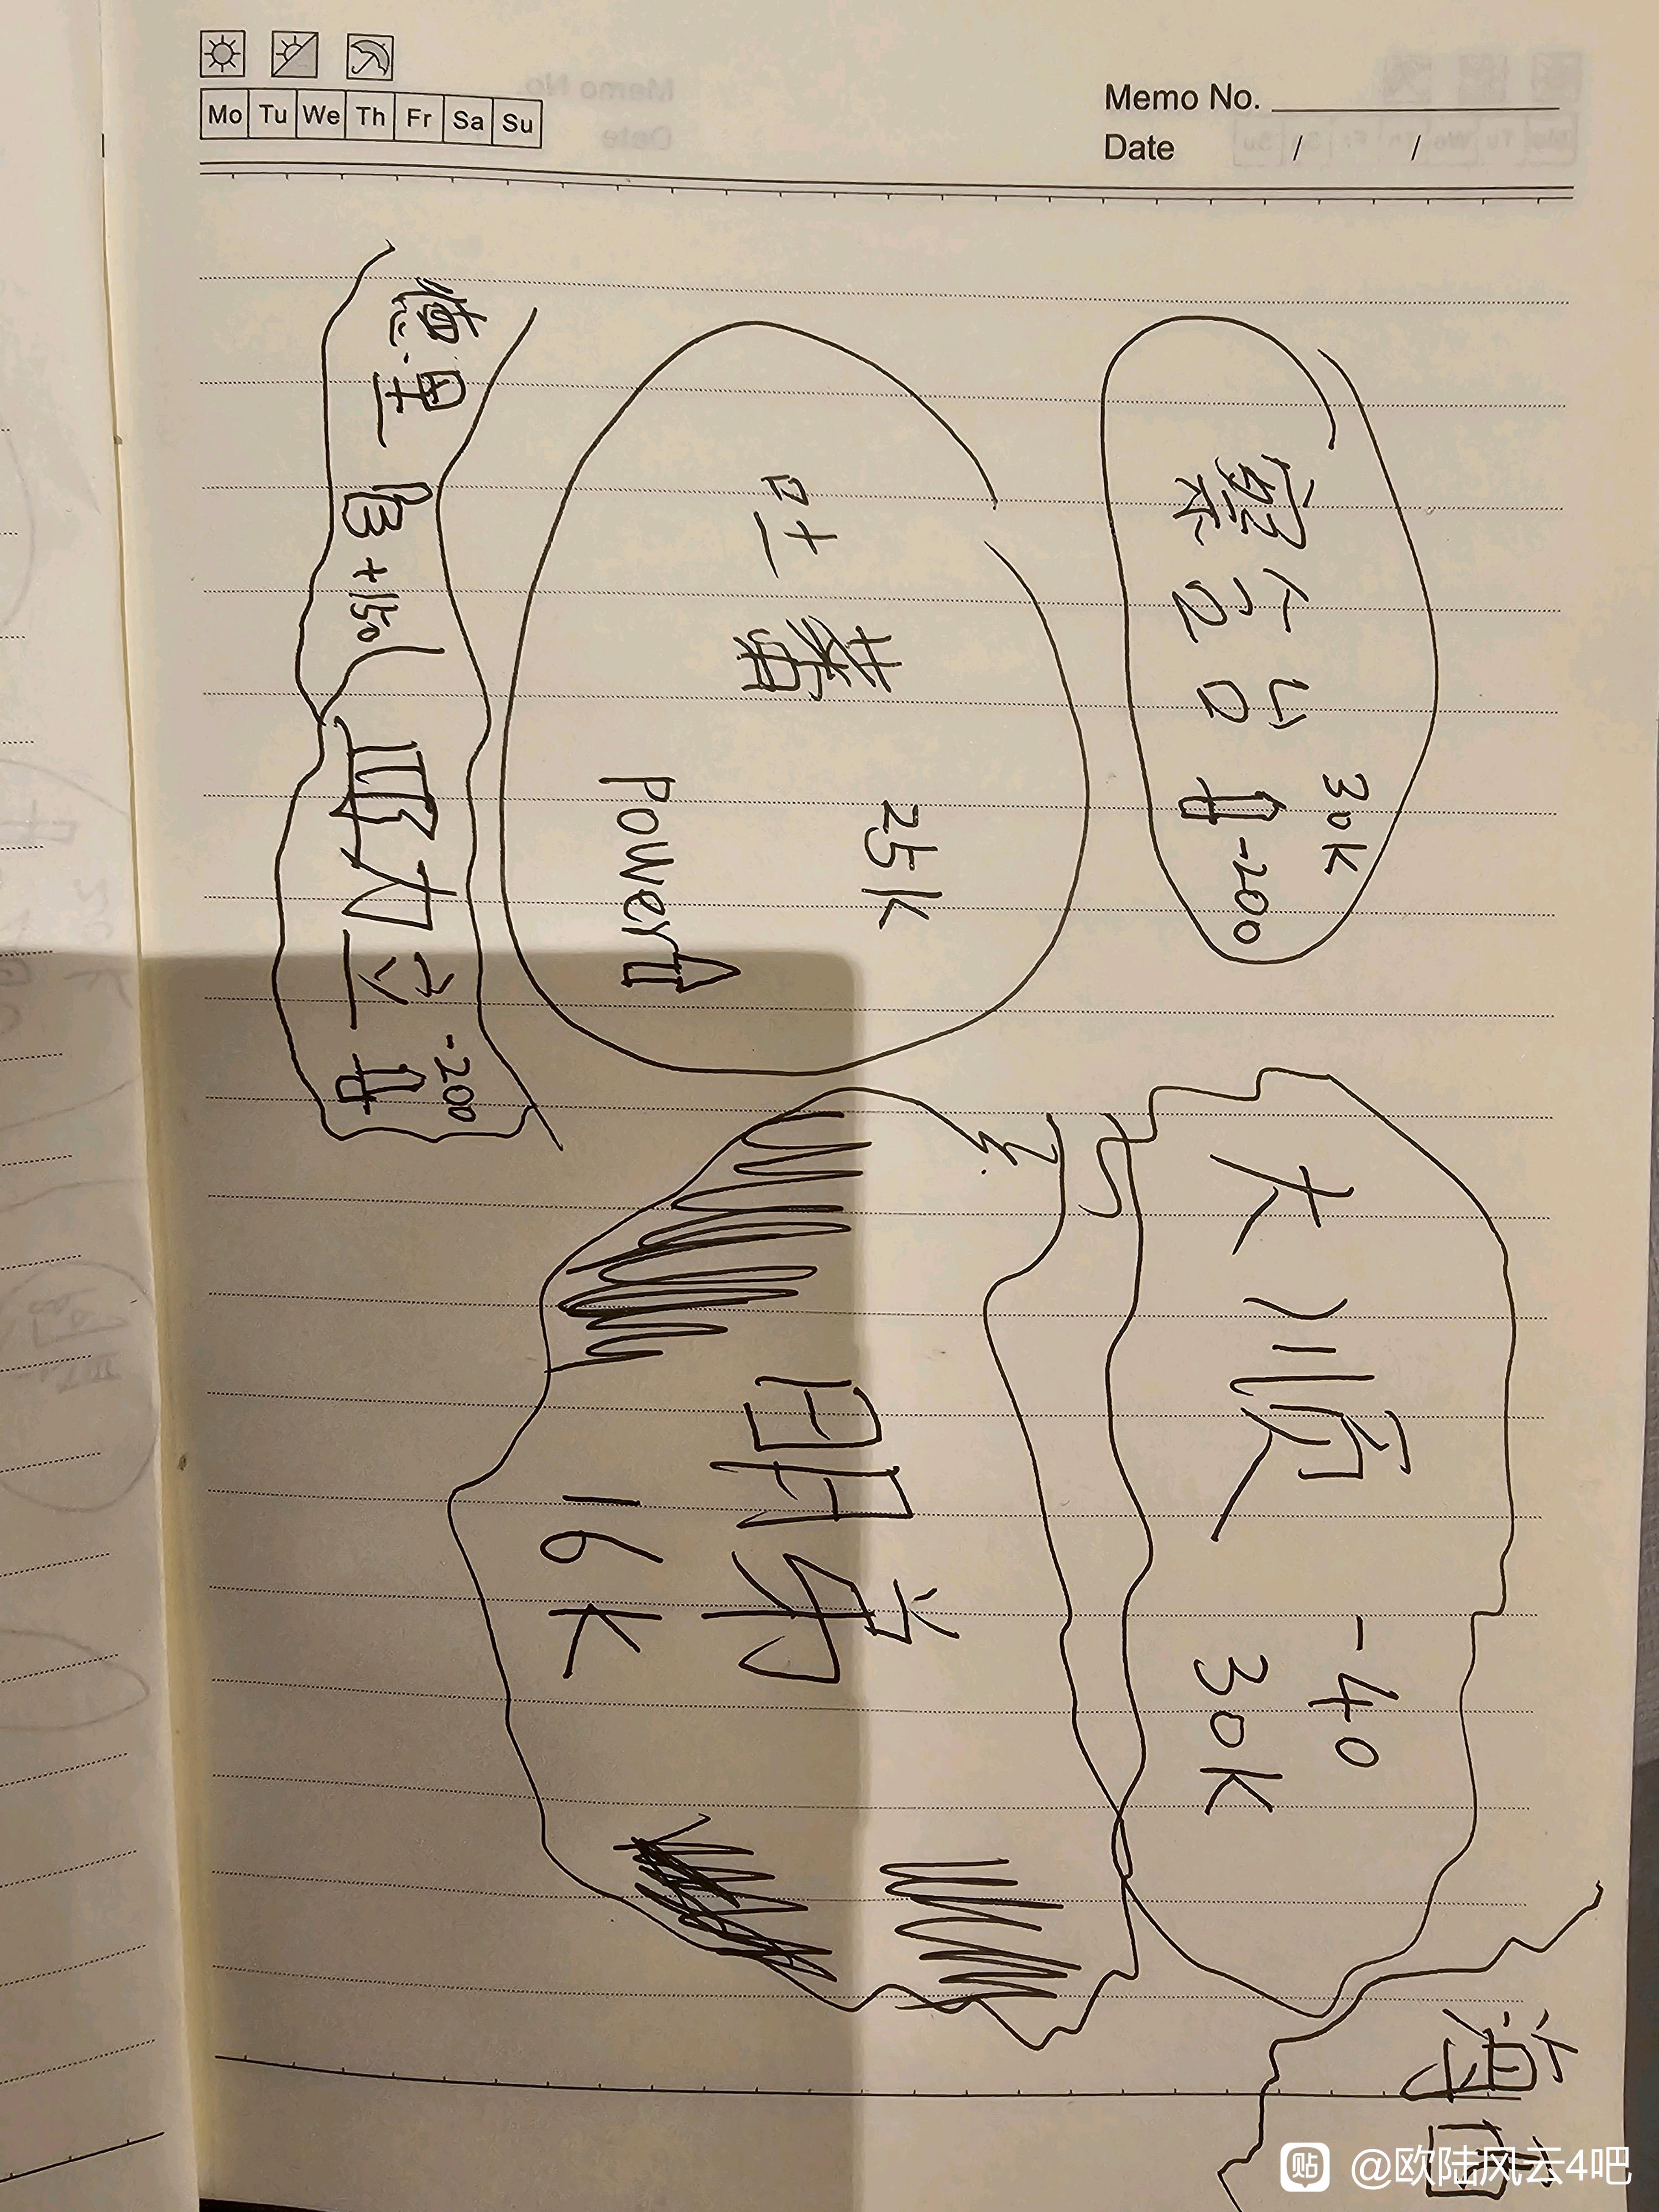 Mo Tu We Th Fr Sa Su
Memo No.
Date / /
察合台 -200
30K
吐蕃
25K
Power
德里 +150
-200
大顺
-40
30K
明帝
16K
贴 @欧陆风云4吧